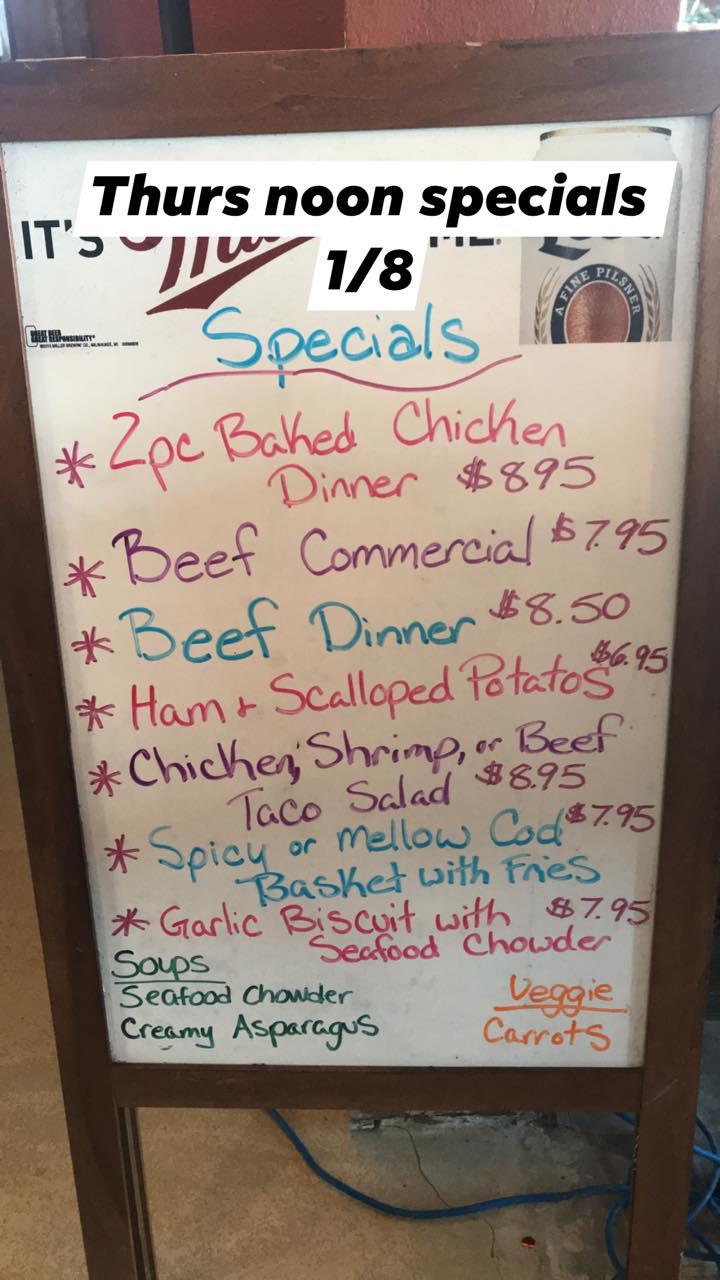 Thurs noon specials
1/8
IT'S
A FINE PILSNER
GREAT BEER
GREAT RESPONSIBILITY
Specials
* 2pc Baked Chicken
Dinner $895
* Beef Commercial $7.95
* Beef Dinner $8.50
* Ham + Scalloped Potatos $6.95
* Chicken, Shrimp, or Beef
Taco Salad $8.95
* Spicy or mellow Cod $7.95
Basket with Fries
* Garlic Biscuit with $7.95
Seafood Chowder
Soups
Seafood Chowder
Creamy Asparagus
Veggie
Carrots